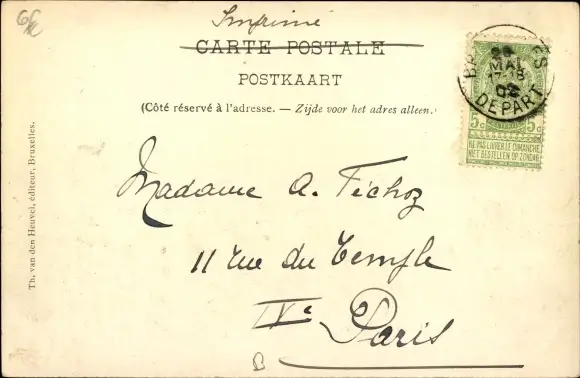 Imprimé
CARTE POSTALE
POSTKAART
(Côté réservé à l'adresse. — Zijde voor het adres alleen.)
MAI
17-18
02
DEPART
5c 5c
NE PAS LIVRER LE DIMANCHE
NIET BESTELLEN OP ZONDAG
Madame A. Féchoz
11 rue du Temple
IVe Paris
B
Th. van den Heuvel, éditeur, Bruxelles.